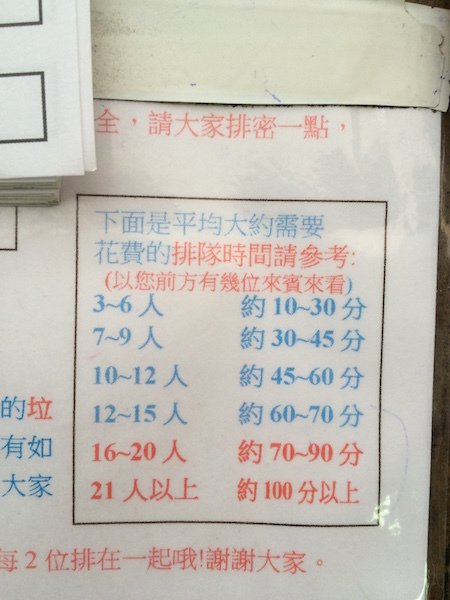 全，請大家排密一點，
下面是平均大約需要
花費的排隊時間請參考:
(以您前方有幾位來賓來看)
3~6 人 約 10~30 分
7~9 人 約 30~45 分
10~12 人 約 45~60 分
12~15 人 約 60~70 分
16~20 人 約 70~90 分
21 人以上 約 100 分以上
的垃
有如
大家
每 2 位排在一起哦!謝謝大家。